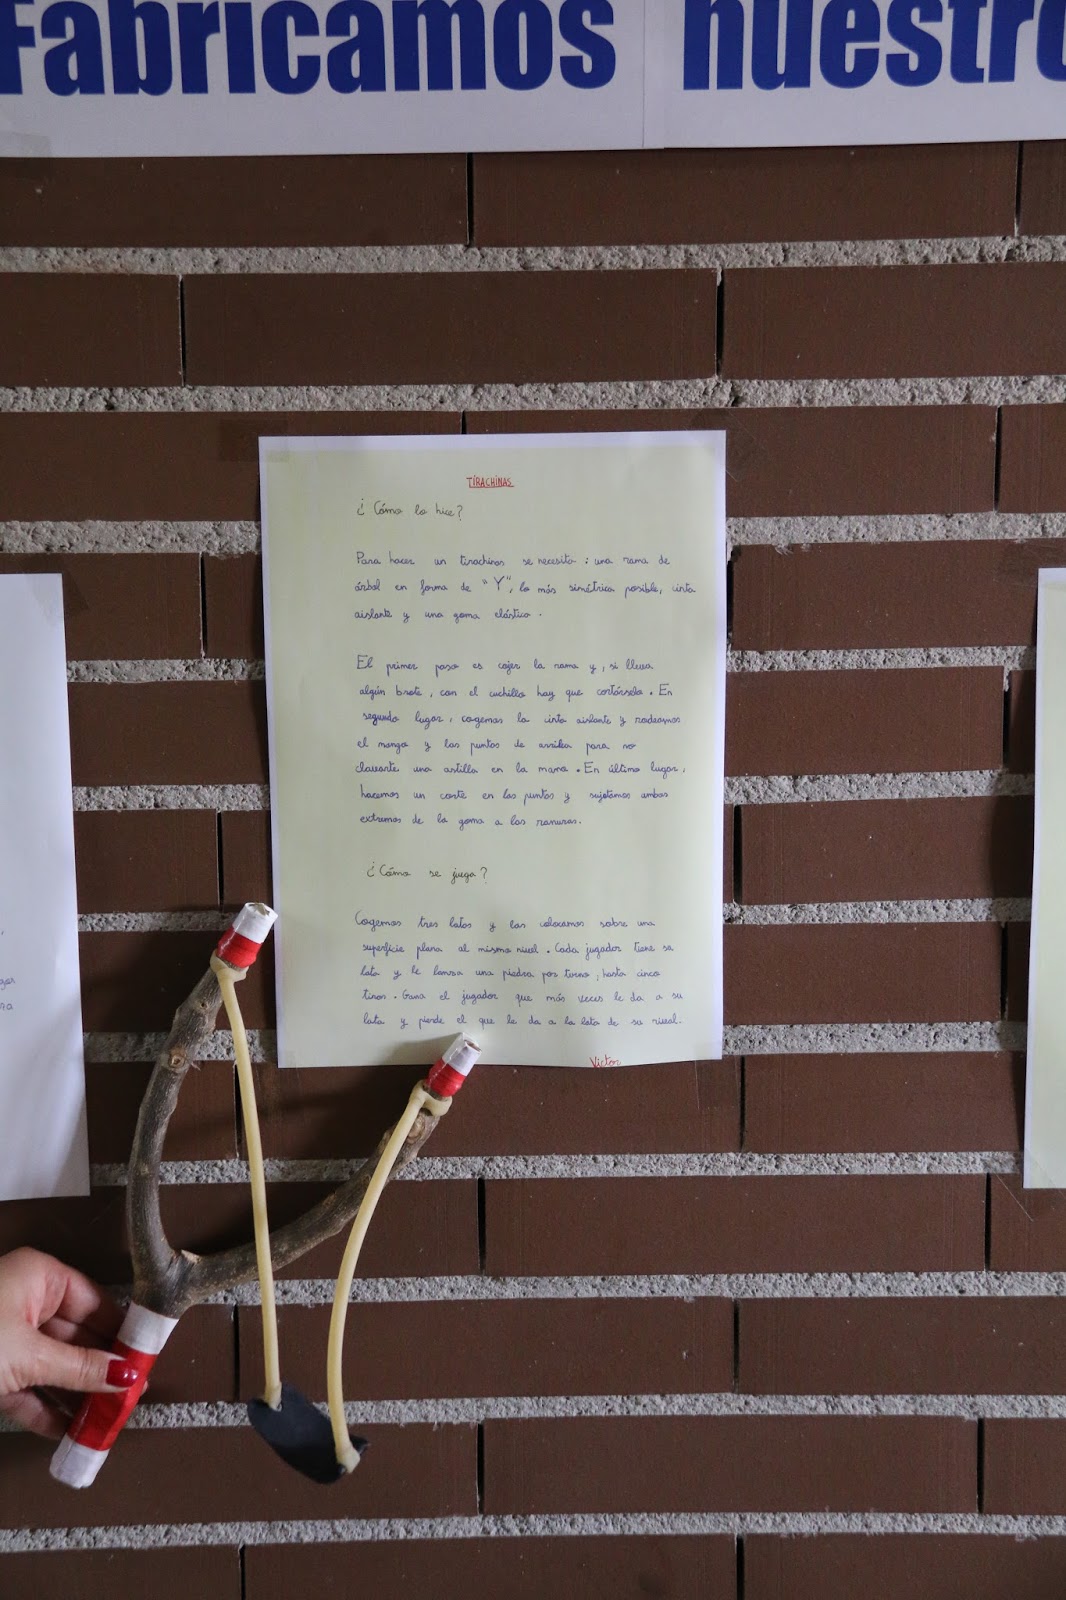 Fabricamos nuestro
TIRACHINAS
¿Cómo lo hice?
Para hacer un tirachinas se necesita: una rama de
árbol en forma de "Y", lo más simétrica posible, cinta
aislante y una goma elástica.
El primer paso es cojer la rama y, si lleva
algún brote, con el cuchillo hay que cortárselo. En
segundo lugar, cogemos la cinta aislante y rodeamos
el mango y las puntas de arriba para no
clavarte una astilla en la mano. En último lugar,
hacemos un corte en las puntas y sujetamos ambos
extremos de la goma a las ranuras.
¿Cómo se juega?
Cogemos tres latas y las colocamos sobre una
superficie plana al mismo nivel. Cada jugador tiene su
lata y le lanza una piedra por turno, hasta cinco
tiros. Gana el jugador que más veces le da a su
lata y pierde el que le da a la lata de su rival.
Victor